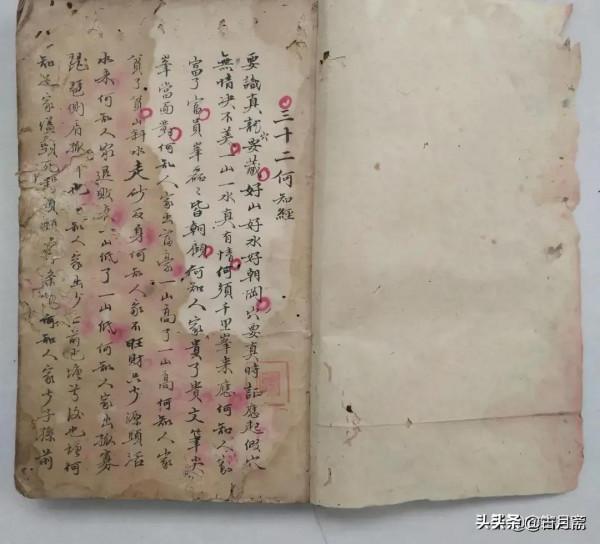 三十二何知經
要識真龍要藏穴好山好水好朝岡穴要真時証應起假穴
無情决不美一山一水真有情何須千里峯來應何知人家
富了富員峯磊々皆朝顧何知人家貴了貴文筆尖
峯當面對何知人家出富豪一山高了一山高何知人家
貧了貧山斜水走砂反身何知人家不旺財只少源頭活
水來何知人家退敗一山低了一山低何知人家出孤寡
琵琶側肩知人家出少亡前也塘兮後也塘何
知是家縊頸死條何知人家少子孫前
头条@古月斋